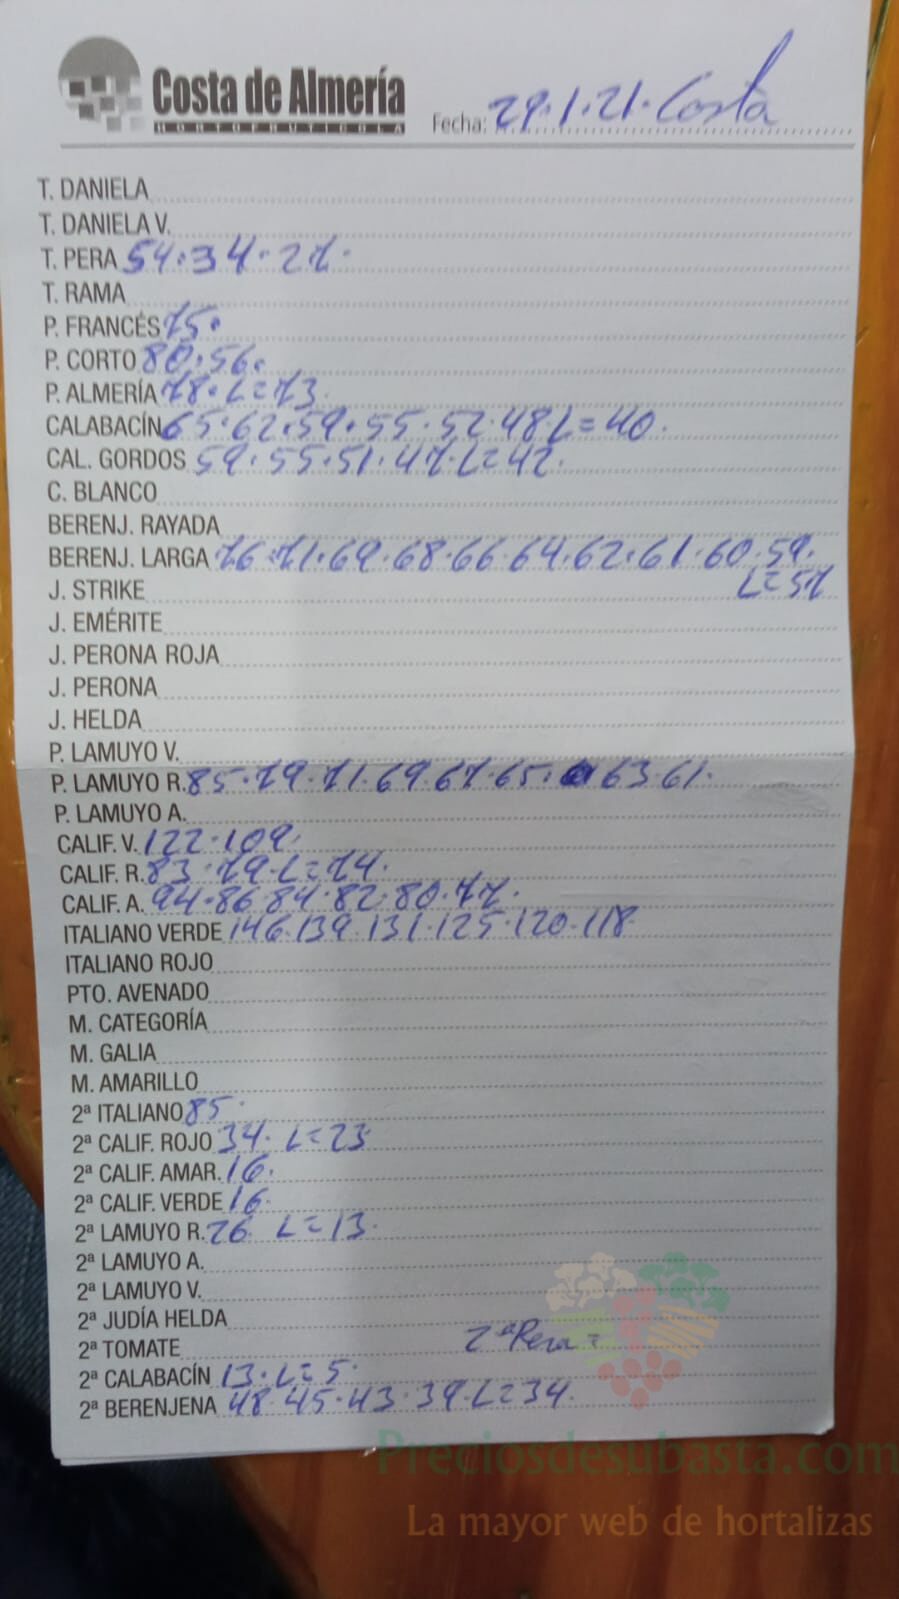 Costa de Almería
HORTOFRUTICOLA
Fecha: 29.1.21. Costa
T. DANIELA
T. DANIELA V.
T. PERA 54.34.27.
T. RAMA
P. FRANCÉS 75.
P. CORTO 80.56.
P. ALMERÍA 78. L=73.
CALABACÍN 65.62.59.55.52.48.L=40.
CAL. GORDOS 59.55.51.47.L=42.
C. BLANCO
BERENJ. RAYADA
BERENJ. LARGA 76.71.69.68.66.64.62.61.60.59.
L=57
J. STRIKE
J. EMÉRITE
J. PERONA ROJA
J. PERONA
J. HELDA
P. LAMUYO V.
P. LAMUYO R. 85.79.71.69.67.65. 63 61.
P. LAMUYO A.
CALIF. V. 122.109.
CALIF. R. 83.79.L=74.
CALIF. A. 94.86 84.82.80.77.
ITALIANO VERDE 146.139.131.125.120.118
ITALIANO ROJO
PTO. AVENADO
M. CATEGORÍA
M. GALIA
M. AMARILLO
2ª ITALIANO 85.
2ª CALIF. ROJO 34. L=23
2ª CALIF. AMAR. 16.
2ª CALIF. VERDE 16.
2ª LAMUYO R. 26. L=13.
2ª LAMUYO A.
2ª LAMUYO V.
2ª JUDÍA HELDA
2ª TOMATE 2ª Pera =
2ª CALABACÍN 13. L=5.
2ª BERENJENA 48.45.43.39.L=34.
Preciosdesubasta.com
La mayor web de hortalizas